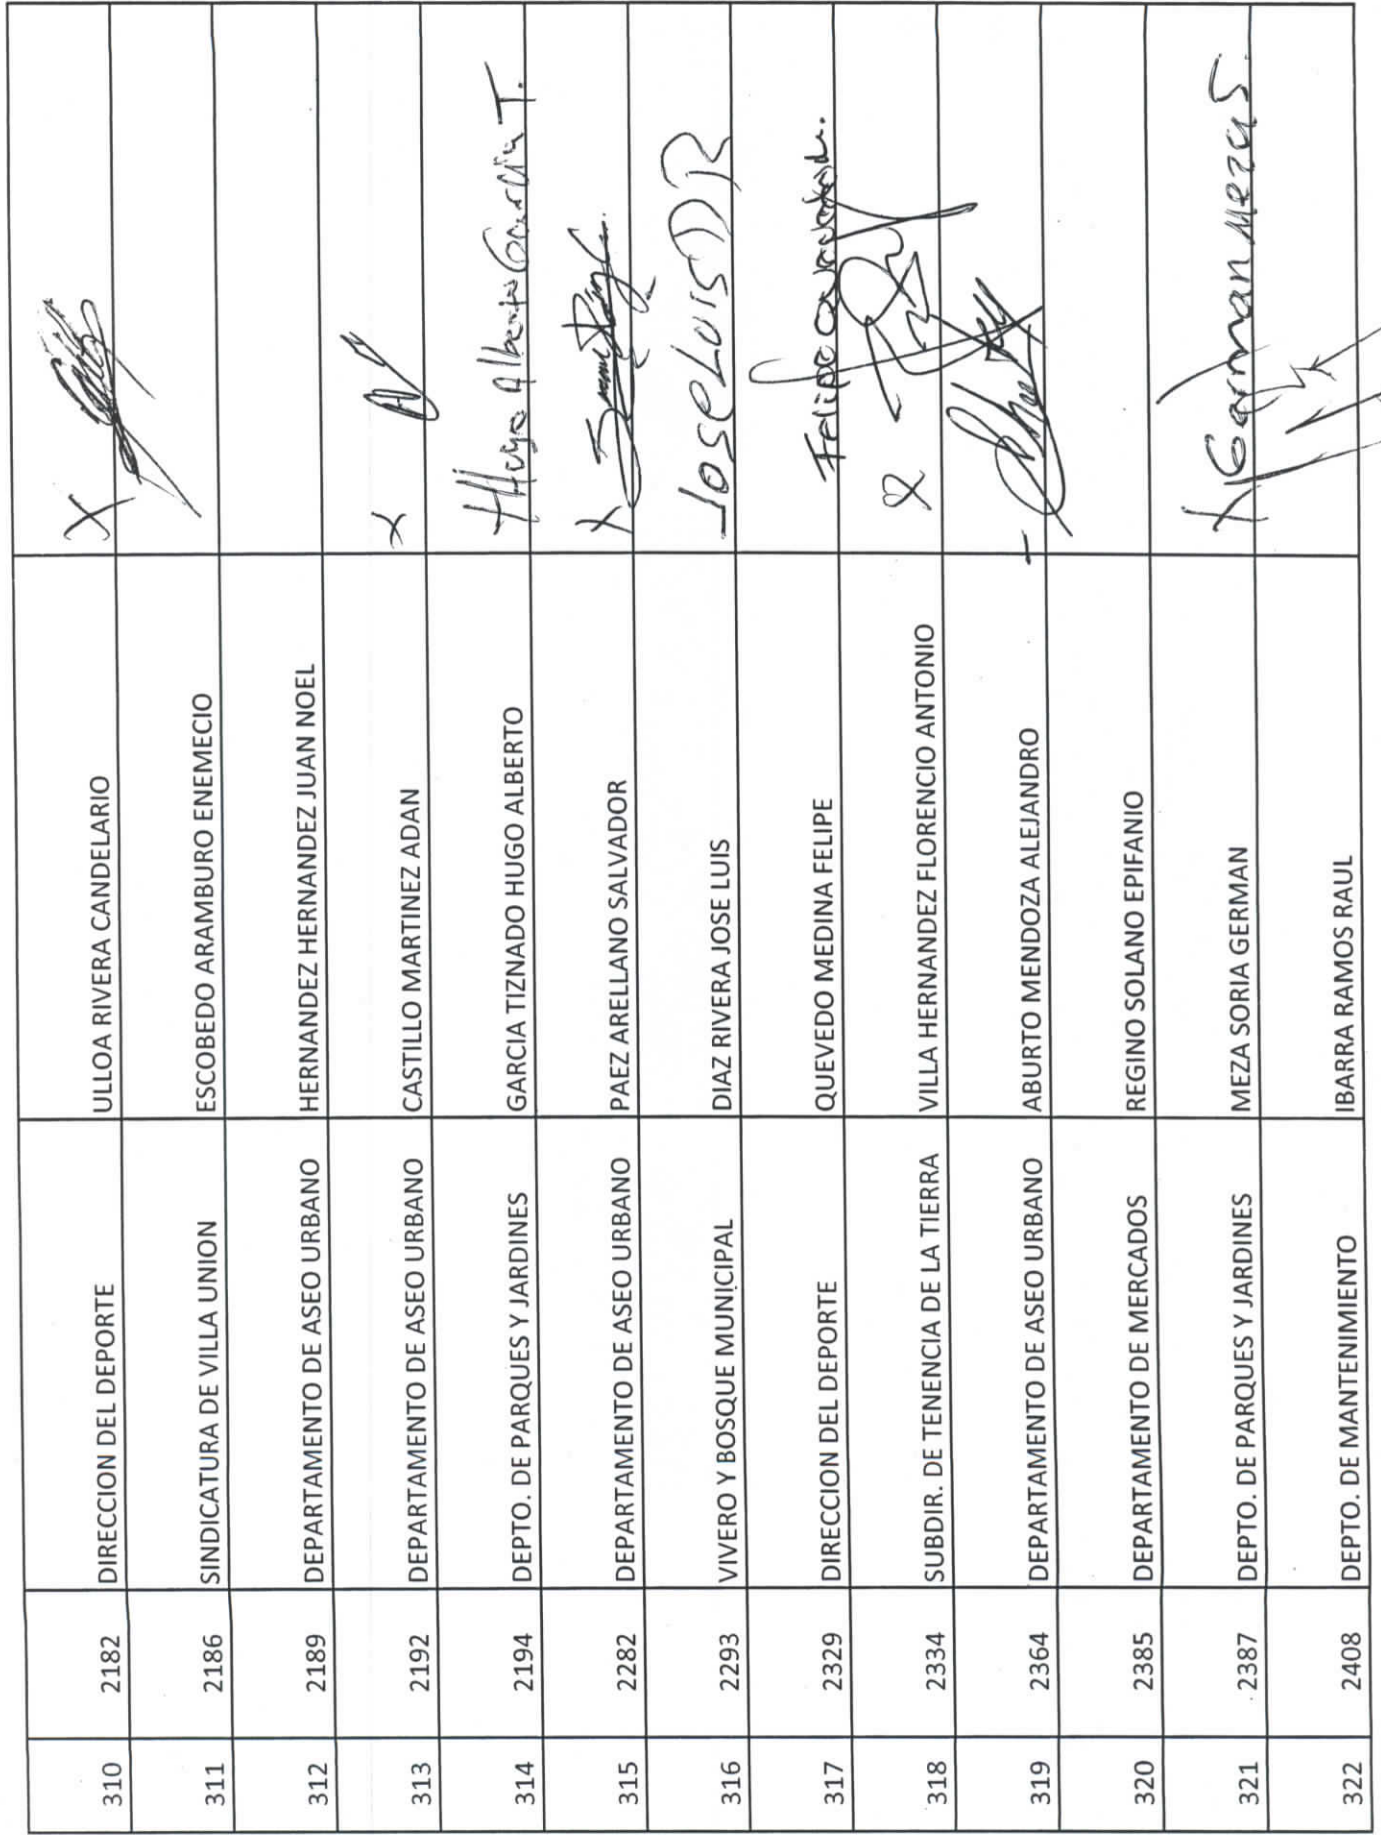 310 2182 DIRECCION DEL DEPORTE ULLOA RIVERA CANDELARIO X
311 2186 SINDICATURA DE VILLA UNION ESCOBEDO ARAMBURO ENEMECIO
312 2189 DEPARTAMENTO DE ASEO URBANO HERNANDEZ HERNANDEZ JUAN NOEL
313 2192 DEPARTAMENTO DE ASEO URBANO CASTILLO MARTINEZ ADAN x
314 2194 DEPTO. DE PARQUES Y JARDINES GARCIA TIZNADO HUGO ALBERTO Hugo Alberto Garcia T.
315 2282 DEPARTAMENTO DE ASEO URBANO PAEZ ARELLANO SALVADOR X
316 2293 VIVERO Y BOSQUE MUNICIPAL DIAZ RIVERA JOSE LUIS Jose Luis D R
317 2329 DIRECCION DEL DEPORTE QUEVEDO MEDINA FELIPE Felipe
318 2334 SUBDIR. DE TENENCIA DE LA TIERRA VILLA HERNANDEZ FLORENCIO ANTONIO
319 2364 DEPARTAMENTO DE ASEO URBANO ABURTO MENDOZA ALEJANDRO
320 2385 DEPARTAMENTO DE MERCADOS REGINO SOLANO EPIFANIO
321 2387 DEPTO. DE PARQUES Y JARDINES MEZA SORIA GERMAN X German Meza S.
322 2408 DEPTO. DE MANTENIMIENTO IBARRA RAMOS RAUL